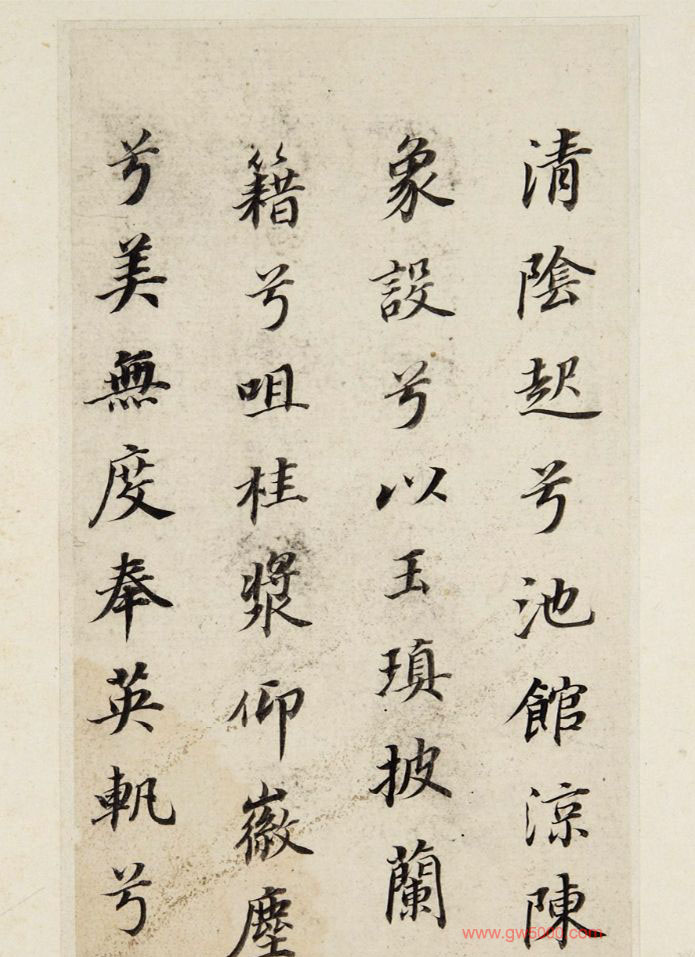 清陰起兮池館涼陳
象設兮以玉瑱披蘭
籍兮咀桂漿仰徽塵
兮美無度奉英軓兮
www.gw5000.com